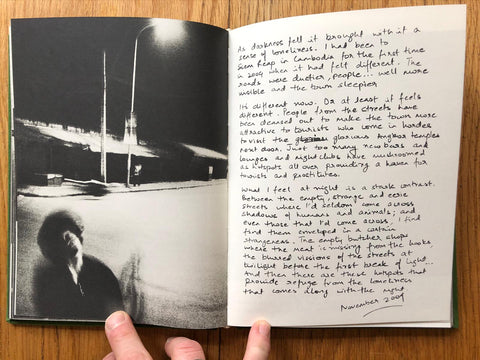 As darkness fell it brought with it a
sense of loneliness. I had been to
Siem Reap in Cambodia for the first time
in 2004 when it had felt different. The
roads were dustier, people... well more
visible and the town sleepier
Its different now. Or at least it feels
different. People from the streets have
been cleaned out to make the town more
attractive to tourists who come in hordes
to visit the glorious Angkor temples
next door. Just too many new bars and
lounges and night clubs have mushroomed
as hotspots all over providing a haven for
tourists and prostitutes.
What I feel at night is a stark contrast.
Between the empty, strange and eerie
streets where I'd seldom come across
shadows of humans and animals; and
even those that I'd come across, I find
them enveloped in a certain
strangeness. The empty butcher shops
where the meat is missing from the hooks
the blurred visions of the streets at
twilight before the first break of light...
And then there are these hotspots that
provide refuge from the loneliness
that comes along with the night.
November 2009